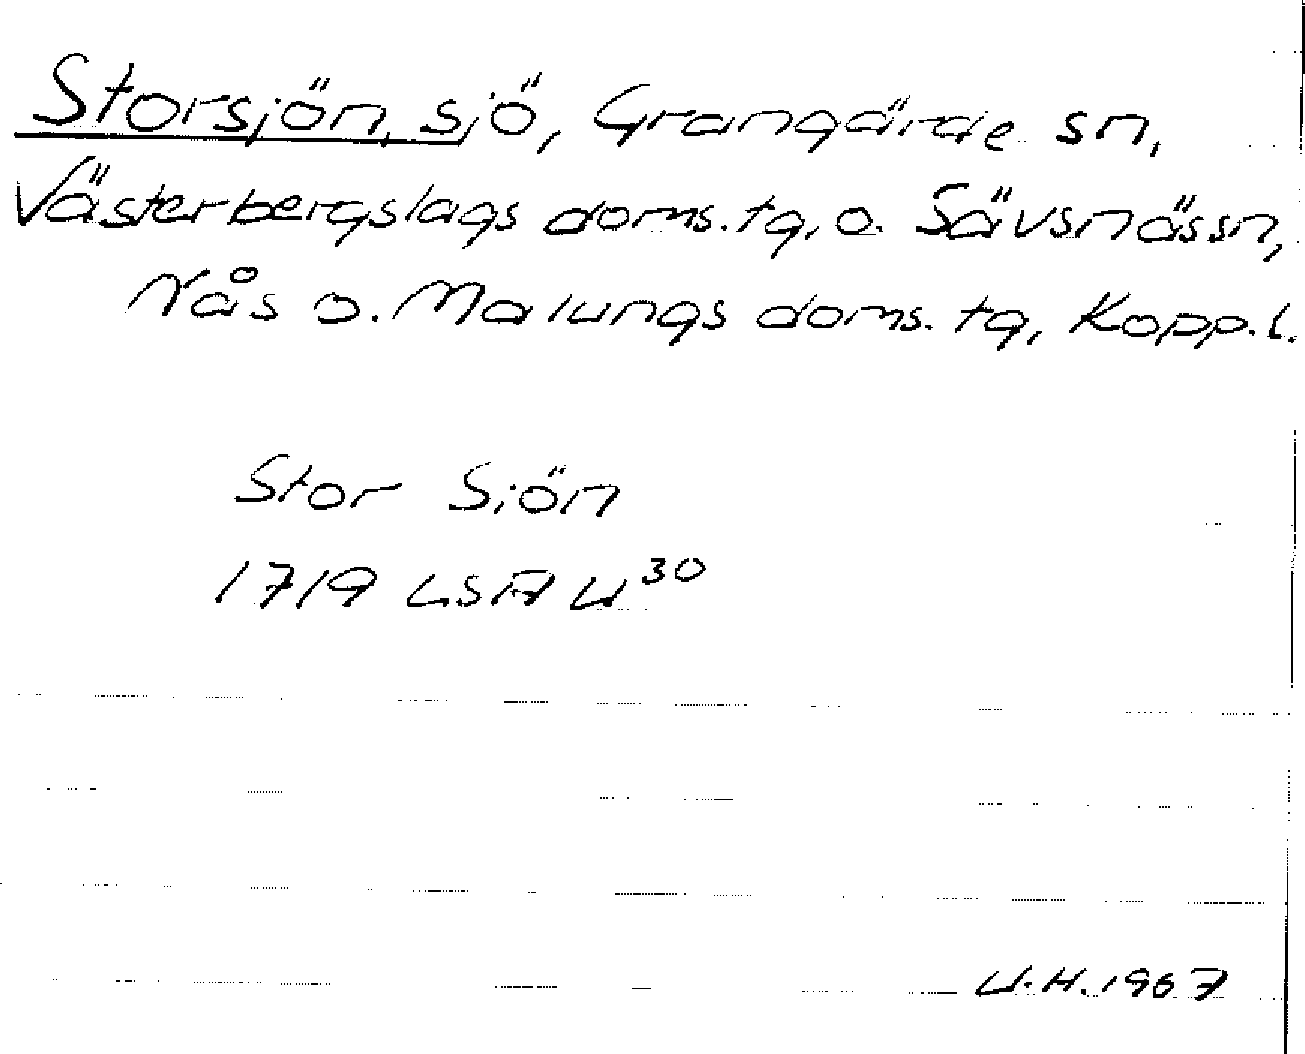 Storsjön, sjö, Grangärde sn,
Västerbergslags doms.tg, o. Säfsnäs sn,
Nås o. Malungs doms. tg, Kopp.l.
Stor Siön
1719 LSA U³⁰
U.H. 1967